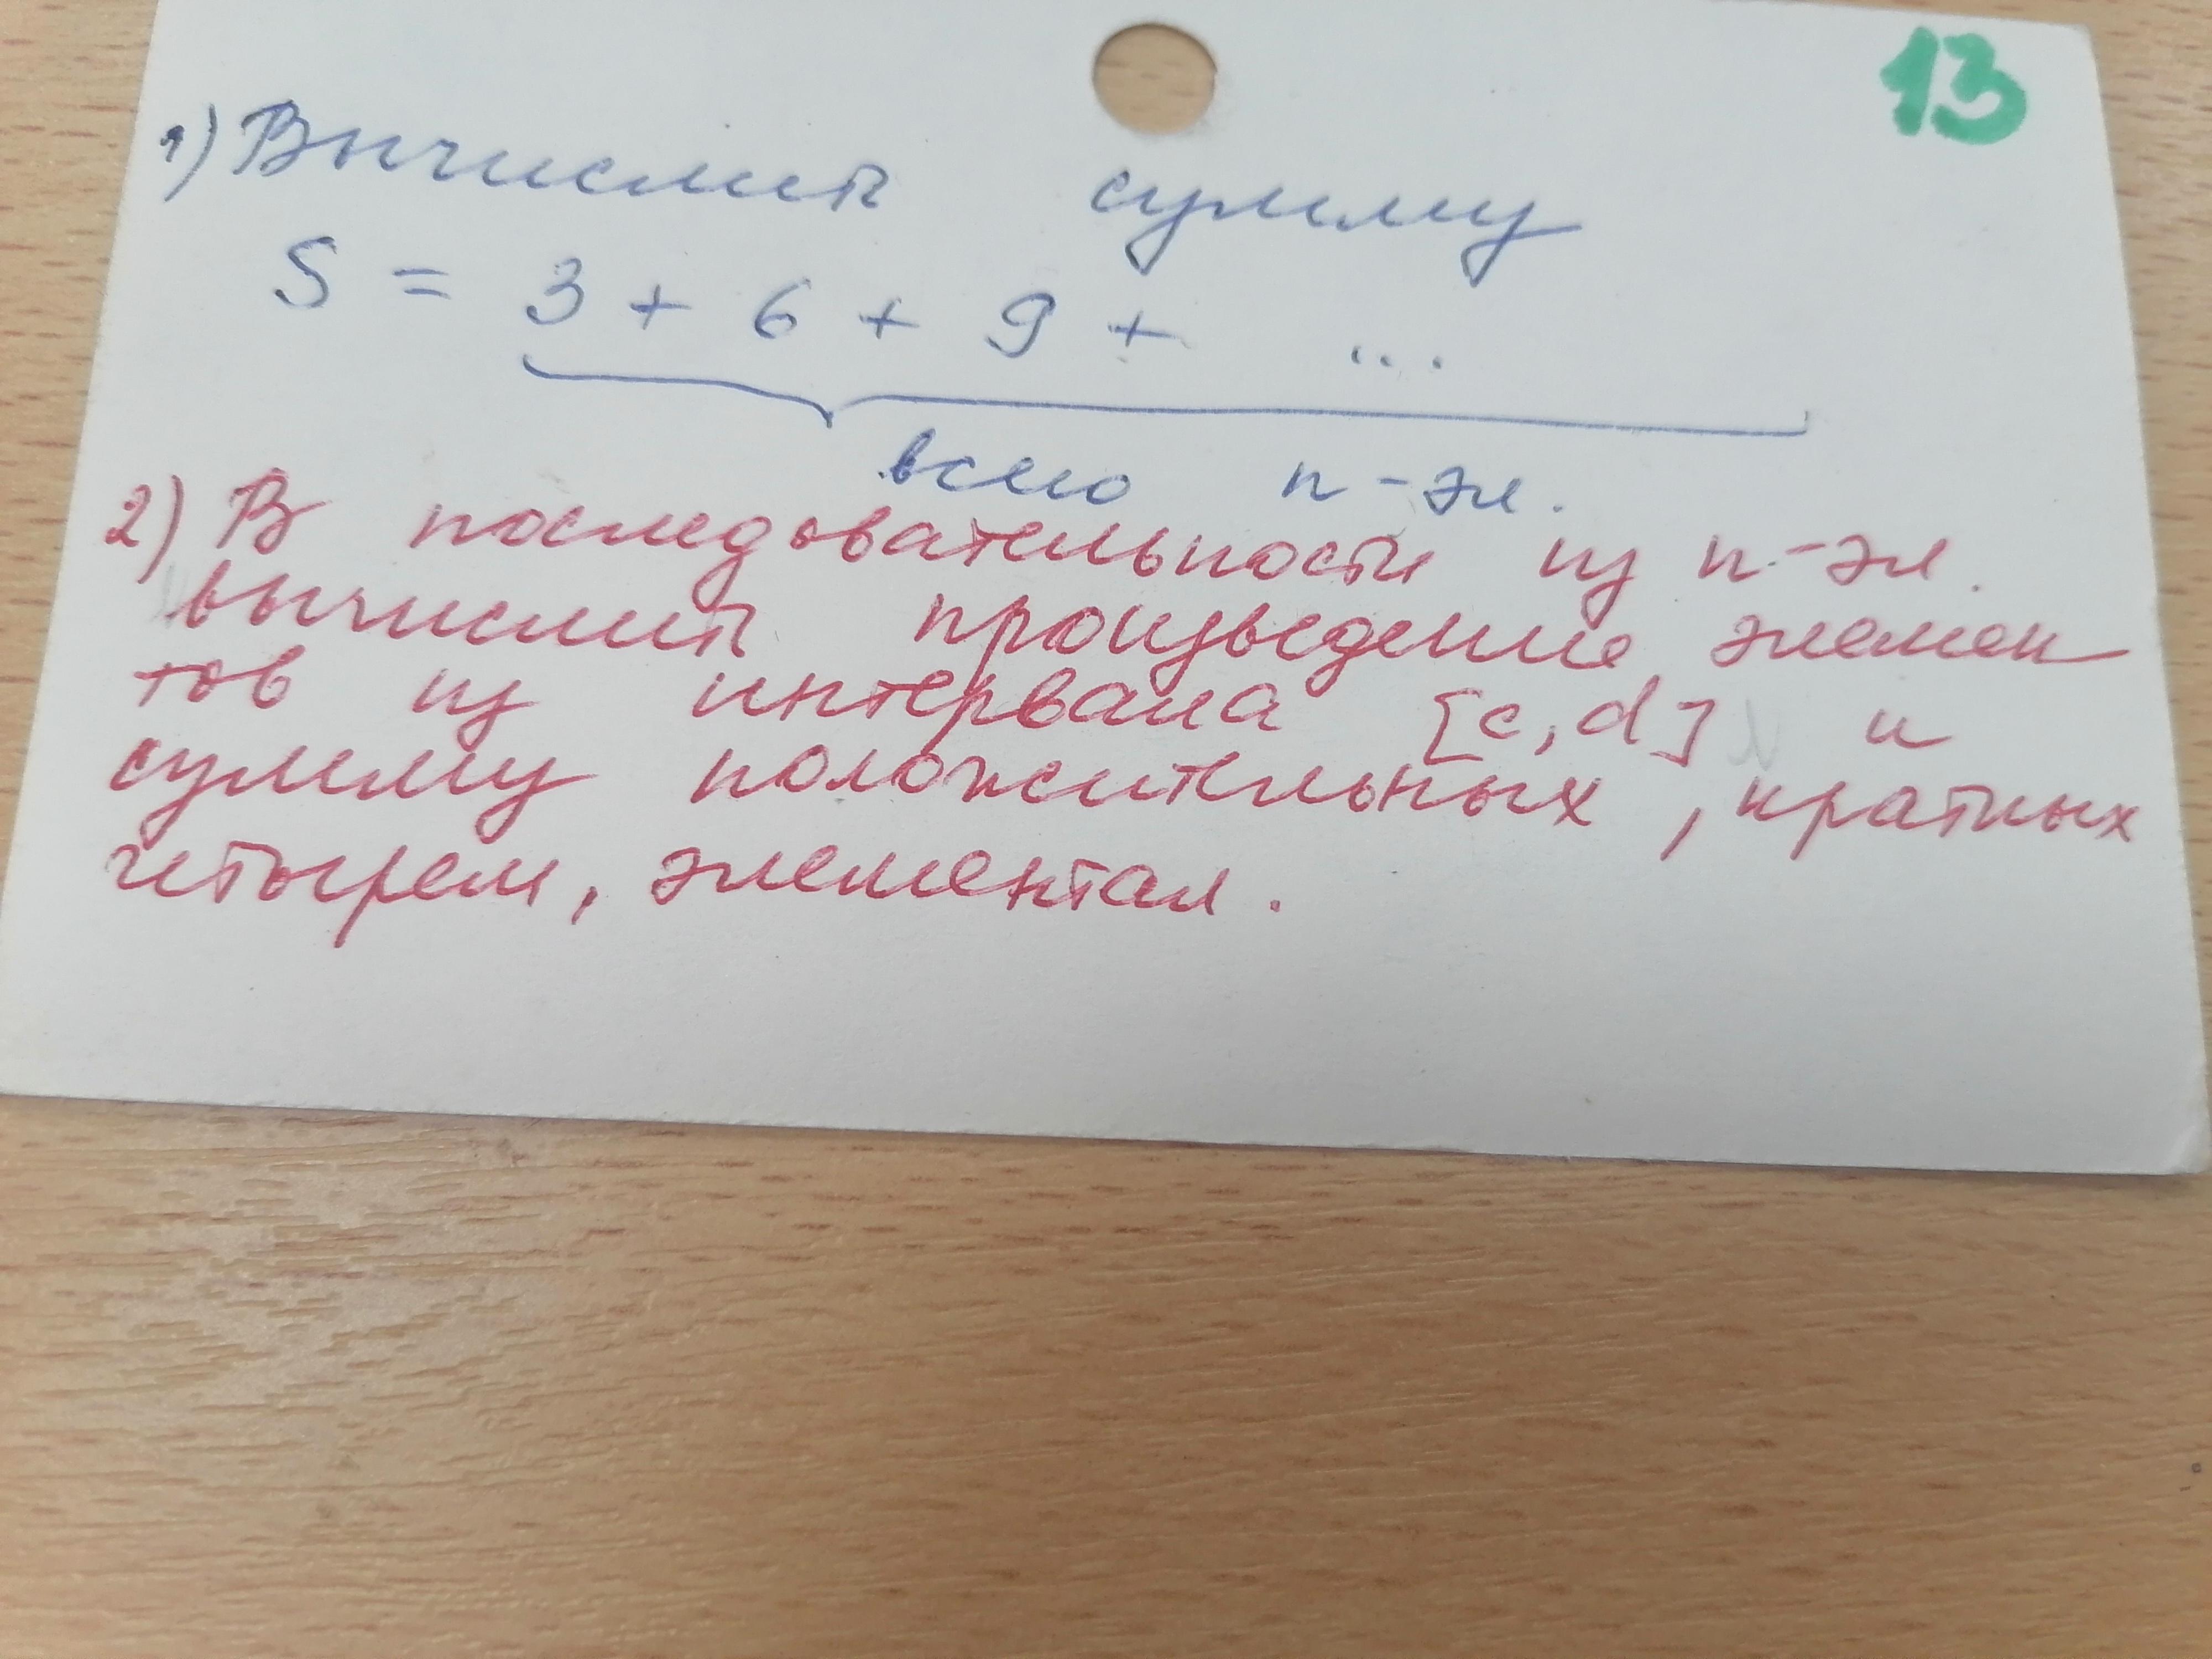 13
1) Вычислить сумму
S = 3 + 6 + 9 + ...
всего n-эл.
2) В последовательности из n-эл.
вычислить произведение элемен
тов из интервала [c, d] и
сумму положительных, кратных
четырем, элементам.